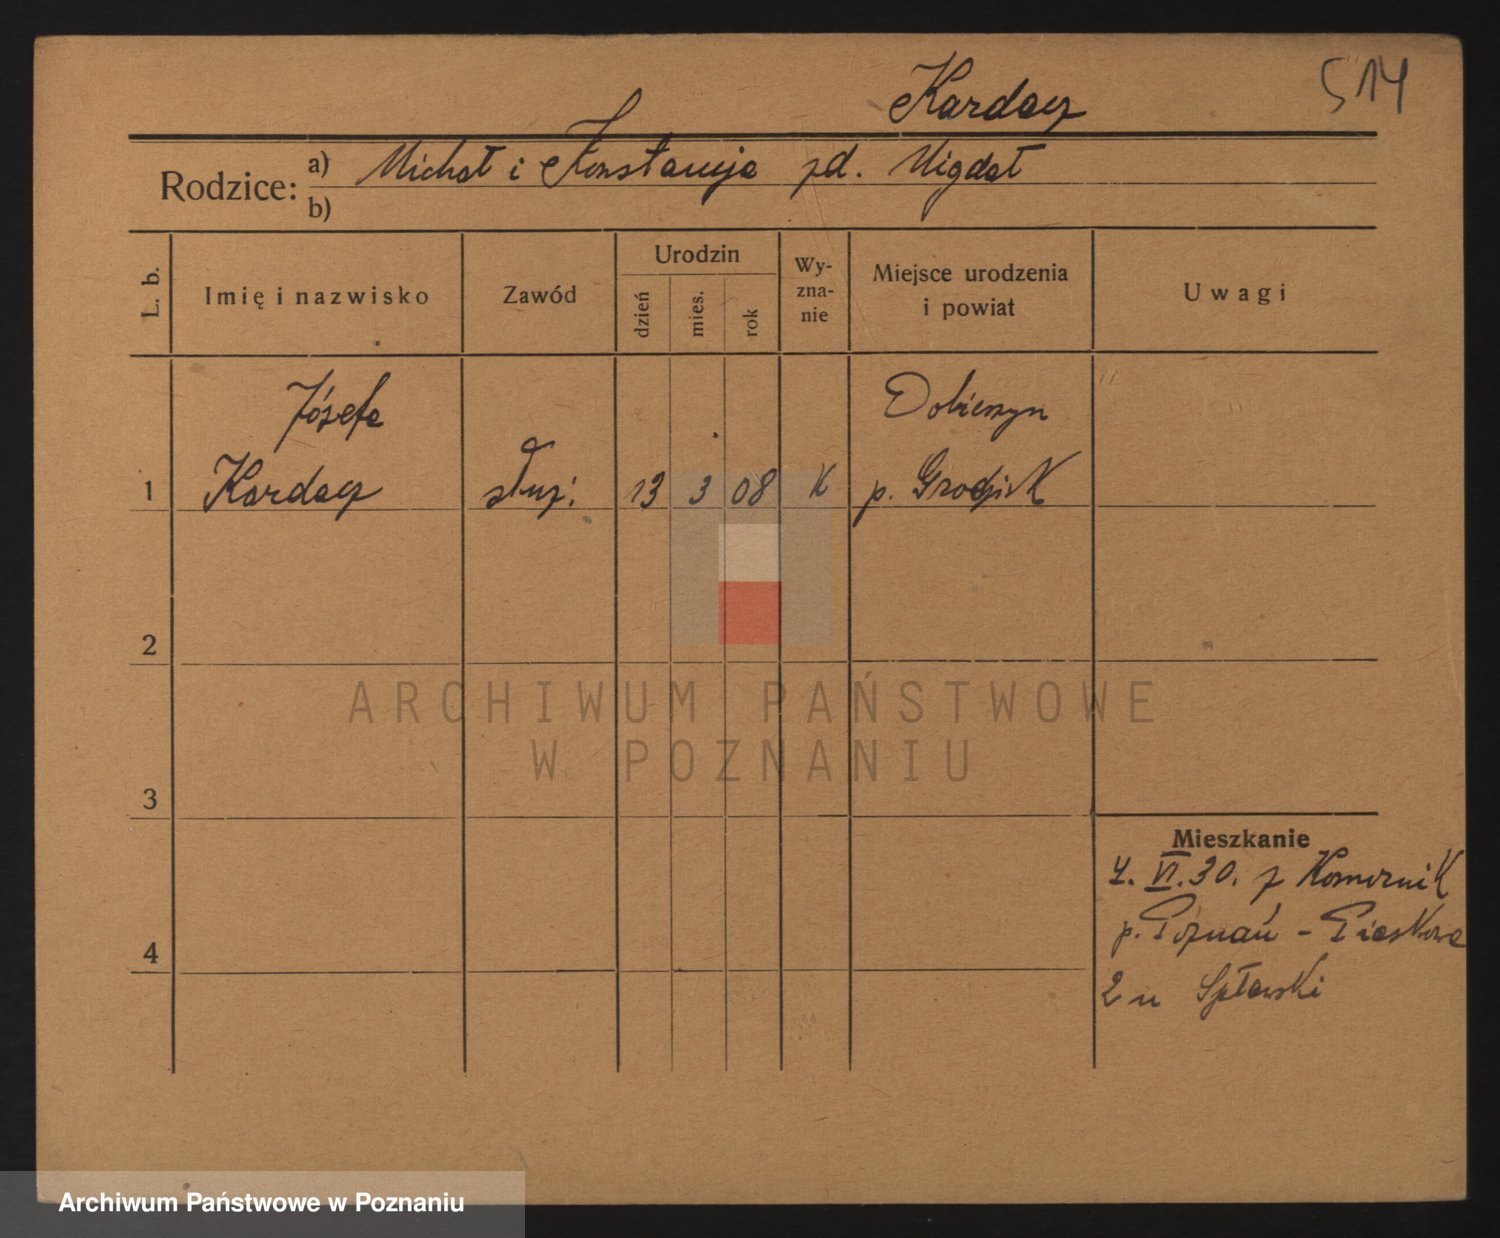 Kardacz 514
Rodzice: a) Michał i Konstancja zd. Migdał
b)
L. b. Imię i nazwisko Zawód Urodzin dzień mies. rok Wy-zna-nie Miejsce urodzenia i powiat Uwagi
Józefa Dobieszyn
1 Kardacz służ. 13 3 08 K p. Grodzisk
2
ARCHIWUM PAŃSTWOWE
W POZNANIU
3
Mieszkanie
4. VI. 30. z Komornik
p. Poznań - Piaskowa
4
2 u Spławski
Archiwum Państwowe w Poznaniu